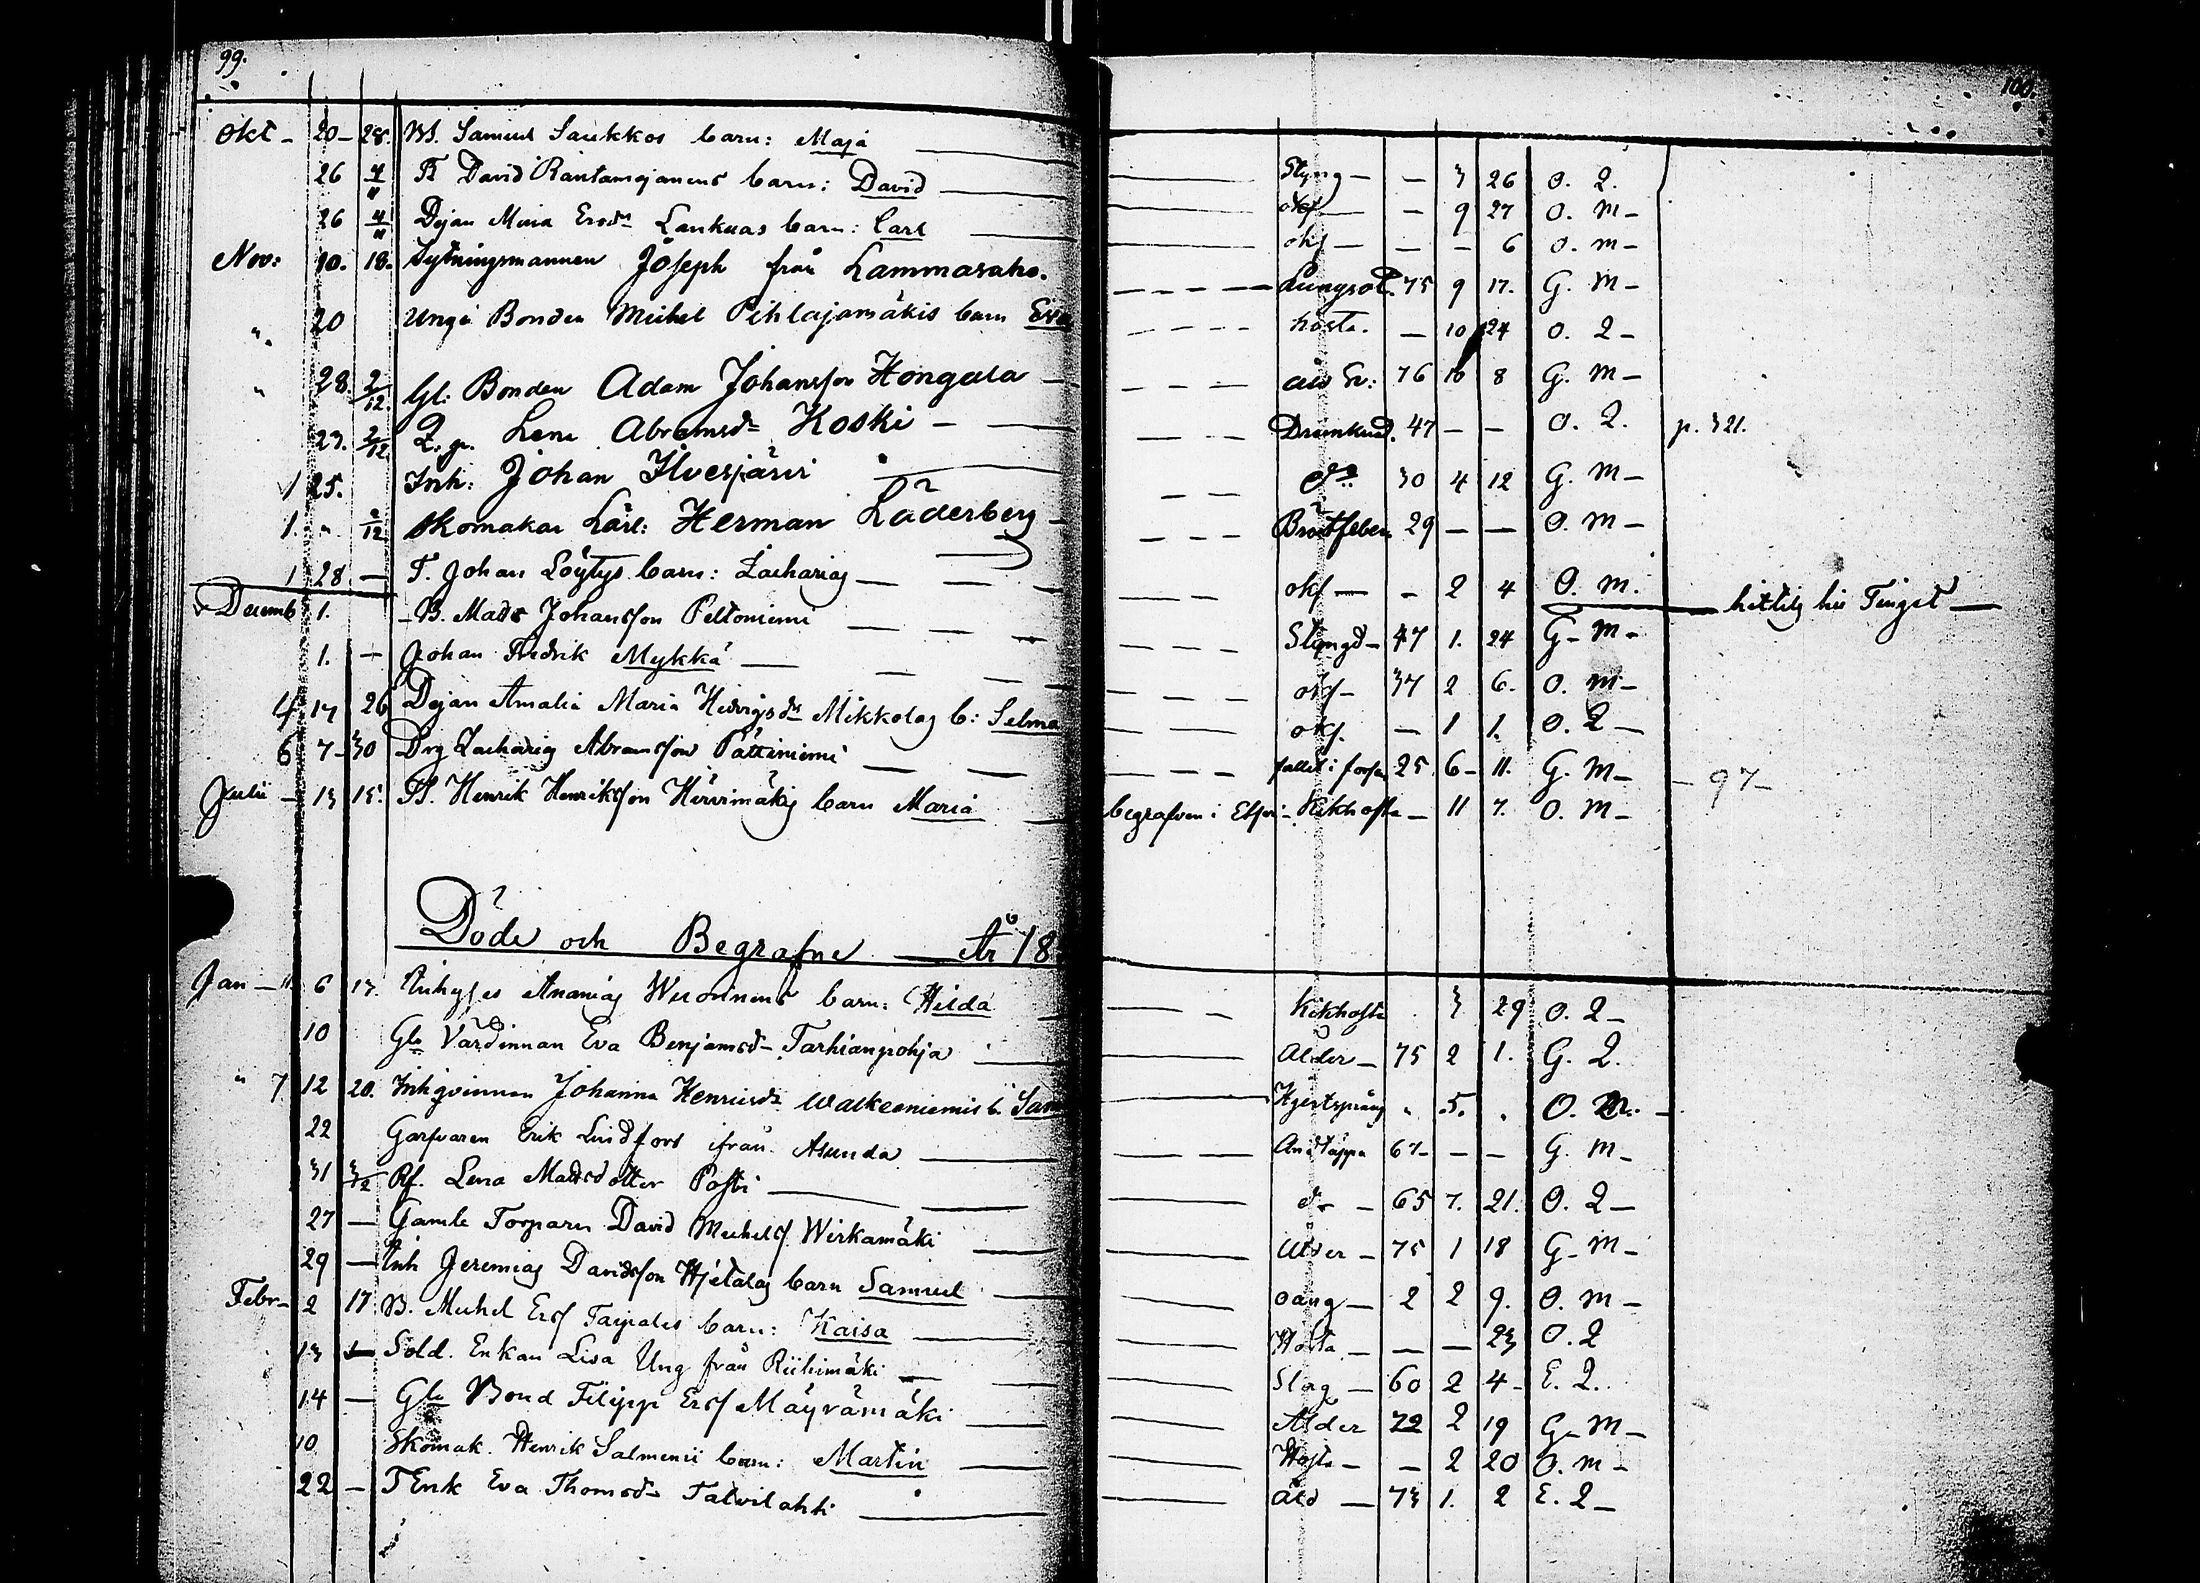 99.
100.
Okt - 20 - 28. Bd. Samuel Saukkos barn: Maja Styng - - 3 26 O. Q.
26 4/11 T David Rantamajanens barn: David okf - 9 27 O. M -
26 4/11 Pijan Mina Ersdr Lankuas barn: Carl okf - - - 6 O. M -
Nov: 10. 18. Sytningsmannen Joseph från Lammasaho. Lungsot. 75 9 17. G. M -
" 20 Unga Bonden Michel Pihlajamäkis barn Eva hosta. - 10 24 O. Q -
" 28. 2/12. Gl: Bonden Adam Johansson Hongala 76 10 8 G. M -
23. 2/12 Lena Abramsdr Koski - Drunknad. 47 - - O. Q. p. 321.
1 25. Inh: Johan Ilvesjärvi do 30 4 12 G. M -
1. " 2/12 Skomakar Lärl: Herman Läderberg Bröstfeber 29 - - O. M -
1 28. - T. Johan Löytys barn: Zacharias okf - - 2 4 O. M. hittils his Tingst
Decemb 1. - B. Mads Johansson Peltoniemi Styngd - 47 1. 24 G - M -
1. - Johan Fredrik Mykkä okf - 37 2 6. O. M -
4 17 26 Pijan Amalia Maria Hedvigsdr Mikkolas b: Selma okf. - 1 1. O. Q -
6 7 - 30 Drg Zacharias Abramsson Pättiniemi fallit i forsen 25 6 - 11. G. M - - 97 -
Julii - 13 15. Henrik Henriksson Hirvimäkis barn Maria begrafven i Etseri - Kikhosta - 11 7. O. M -
Döde och Begrafne År 18
Jan - 11 6 17. Inhyses Ananias Weronens barn: Hilda Kikhosta 3 29 O. Q -
10 Gla Värdinnan Eva Benjamsdr Tarhianpohja Ålder - 75 2 1. G. Q.
" 7 12 20. Inhqvinnan Johanna Henricsdr Walkeaniemis b. Sam Hjertsprång " .5. . O. M. -
22 Garfvaren Erik Lindfors ifrån Asunda Andtäppa 67 - - G. M -
31 3/2 Pf. Lena Madsdotter Posti do - 65 7. 21. O. Q -
27 - Gamle Torparn David Michelsf Wirkamäki Ålder - 75 1 18 G - M -
29 - Inh Jeremias Davidsson Hjetalas barn Samuel oang - 2 2 9. O. M -
Febr - 2 17 B. Michel Ersf Taipales barn: Kaisa Hosta - - - 23 O. Q
13 Sold. Enkan Lisa Ung från Riihimäki Slag - 60 2 4 - E. Q.
14 - Gla Bond Filipp Ersf Mäyrämäki Ålder 72 2 19 G - M -
10 Skomak. Henrik Salmenii barn: Martin Hosta - - 2 20 O. M -
22 - T Enk Eva Thomsdr Talvilahti Åld - 73 1. 2 E. Q -